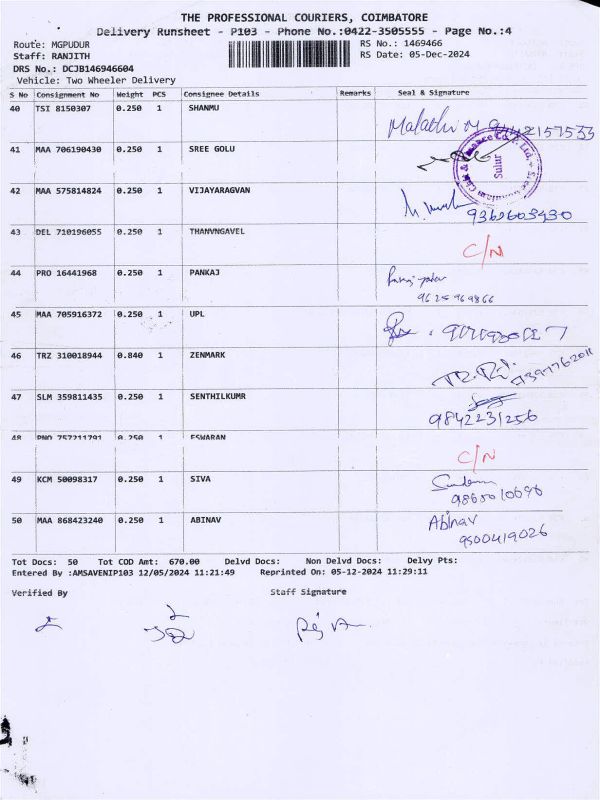 THE PROFESSIONAL COURIERS, COIMBATORE
Delivery Runsheet - P103 - Phone No.:0422-3505555 - Page No.:4
Route: MGPUDUR RS No.: 1469466
Staff: RANJITH RS Date: 05-Dec-2024
DRS No.: DCJB146946604
Vehicle: Two Wheeler Delivery
S No Consignment No Weight PCS Consignee Details Remarks Seal & Signature
40 TSI 8150307 0.250 1 SHANMU
Malathi M
41 MAA 706190430 0.250 1 SREE GOLU
Sulur
42 MAA 575814824 0.250 1 VIJAYARAGVAN
9362603430
43 DEL 710196055 0.250 1 THANVNGAVEL
C/N
44 PRO 16441968 0.250 1 PANKAJ
9625969866
45 MAA 705916372 0.250 1 UPL
46 TRZ 310018944 0.840 1 ZENMARK
47 SLM 359811435 0.250 1 SENTHILKUMR
9842231256
48 PNQ 757211791 0.250 1 ESWARAN
C/N
49 KCM 50098317 0.250 1 SIVA
50 MAA 868423240 0.250 1 ABINAV
Abinav
9500419026
Tot Docs: 50 Tot COD Amt: 670.00 Delvd Docs: Non Delvd Docs: Delvy Pts:
Entered By :AMSAVENIP103 12/05/2024 11:21:49 Reprinted On: 05-12-2024 11:29:11
Verified By Staff Signature